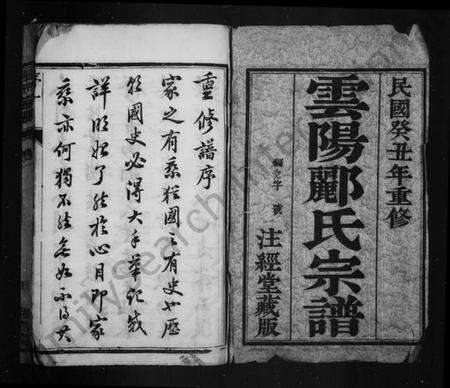 民國癸丑年重修
雲陽酈氏宗譜
字 號
注經堂藏版
重修譜序
家之有乘猶國之有史也歷
祀國史必得大手筆記載
詳明始了然於心目即家
乘亦何獨不然無如不得其
FamilySearch